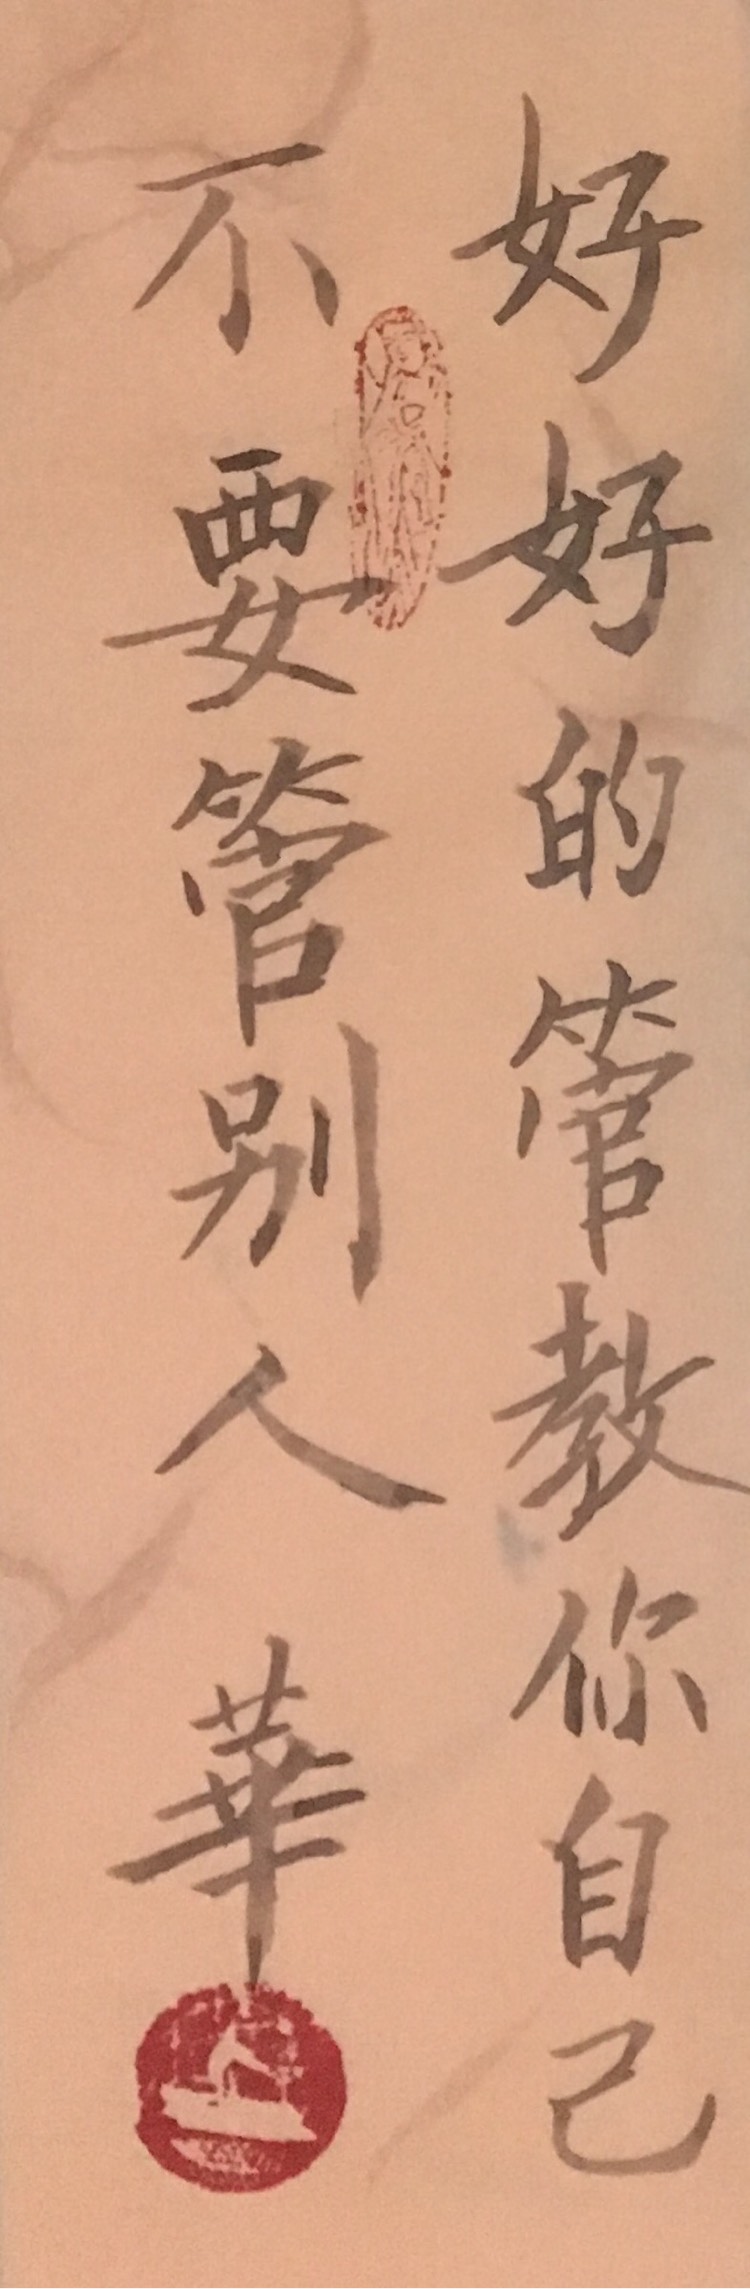 好好的管教你自己
不要管别人 華